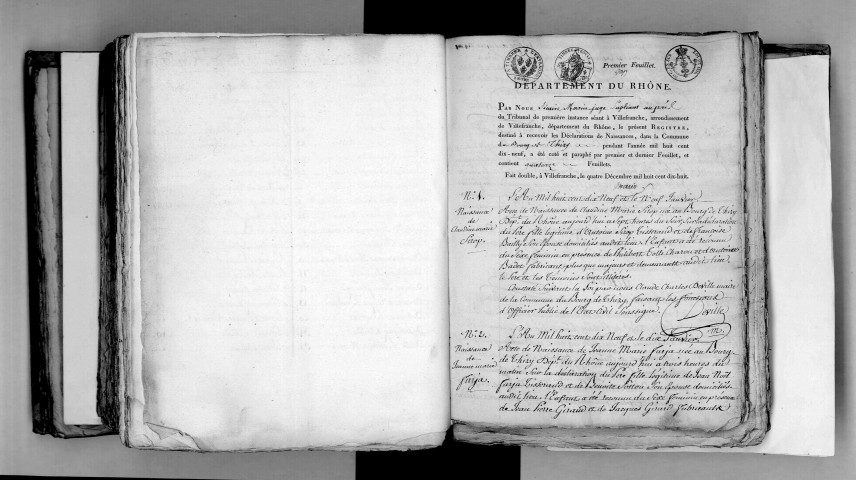 Premier Feuillet.
DÉPARTEMENT DU RHÔNE.
PAR NOUS Marin juge Supléant
du Tribunal de première instance séant à Villefranche, arrondissement
de Villefranche, département du Rhône, le présent REGISTRE,
destiné à recevoir les Déclarations de Naissances, dans la Commune
du Bourg de Thizy pendant l'année mil huit cent
dix-neuf, a été coté et paraphé par premier et dernier Feuillet, et
contient quatorze Feuillets.
Fait double, à Villefranche, le quatre Décembre mil huit cent dix-huit.
Marin
N.º 1.
Naissance
de
Claudine marie
L'An Mil huit cent dix Neuf et le Neuf Janvier
Acte de Naissance de Claudine Marie née au Bourg de Thizy
Dép.t du Rhône aujourd'hui a Sept heures du Soir, Sur la déclaration
du Père fille légitime d'Antoine Tisserand et de françoise
Bailly Son Epouse domiciliés audit lieu. L'Enfant a été reconnu
du Sexe féminin en présence de Philibert Charon et d'Antoine
Badet fabricants, plus que majeurs et demeurants audit lieu
le Père et les Temoins Sont illitérés.
Constaté Suivant la Loi par nous Claude Charles Deville maire
de la Commune du Bourg de Thizy, faisant les fonctions
d'Officier public de l'Etat civil Soussigné.
Deville
m.
N.º 2.
Naissance
de
Jeanne marie
farja
L'An Mil huit cent dix Neuf et le dix Janvier
Acte de Naissance de Jeanne Marie farja née au Bourg
de Thizy Dép.t du Rhône aujourd'hui a trois heures du
matin Sur la déclaration du Père fille légitime de Jean Noël
farja Tisserand et de Benoite Son Epouse domiciliés
audit lieu. L'Enfant a été reconnu du Sexe féminin en présence
de Jean Pierre Giraud et de Jacques Girard fabricants